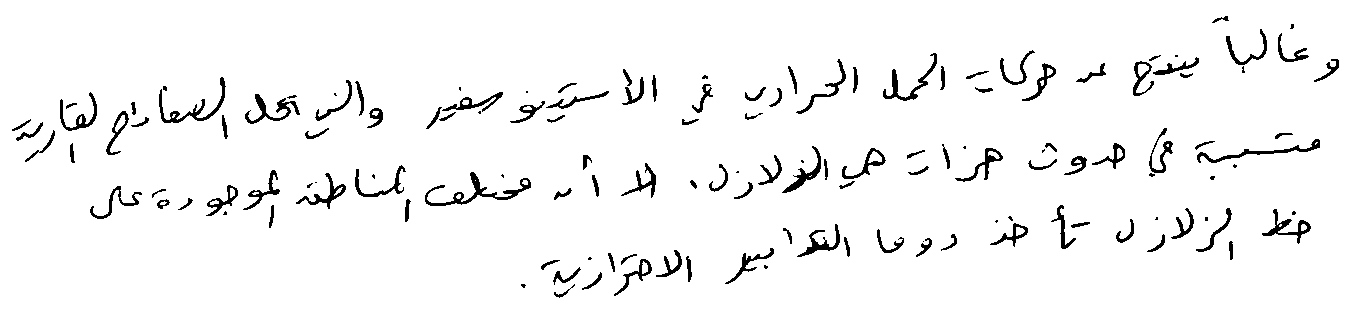 وغالباً ينتج عن حركات الحمل الحراري في الأستينوسفير والتي تحمل الصفائح القارية
متسببة في حدوث هزات هي الزلازل. الا أن مختلف المناطق الموجودة على
خط الزلازل تأخذ دوما التدابير الاحترازية.